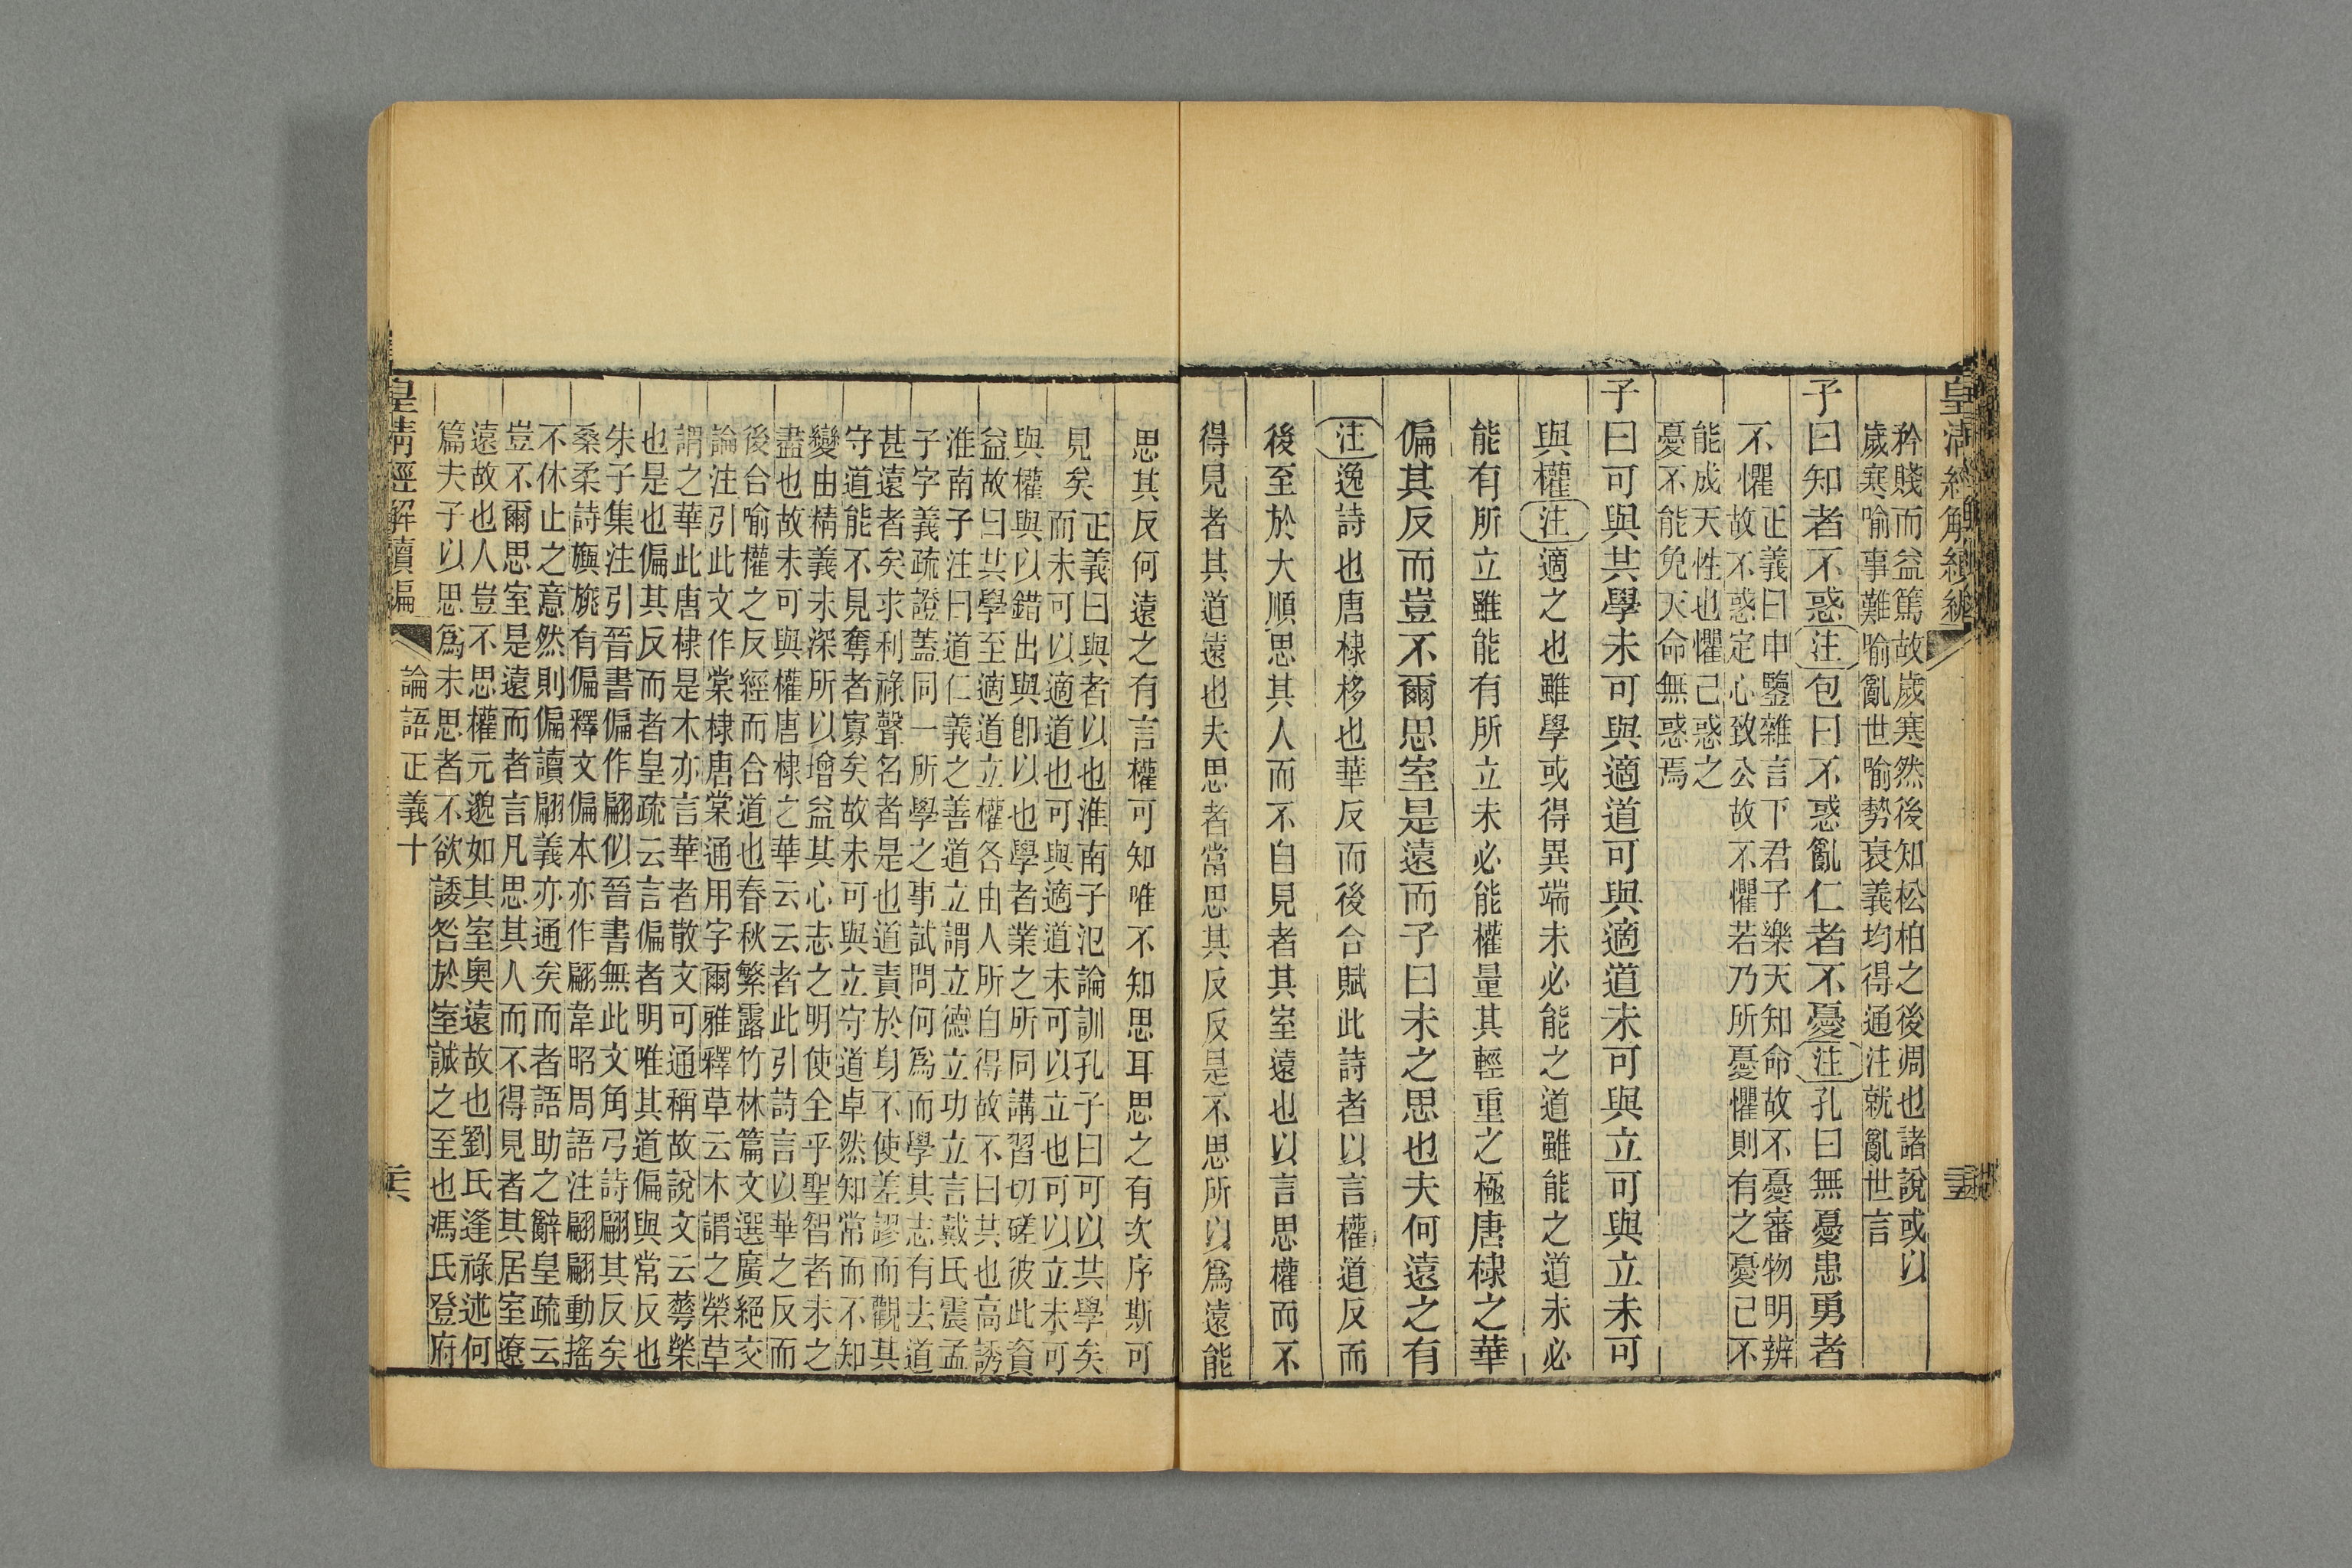 皇清經解續編
矜賤而益篤故歲寒然後知松柏之後凋也諸說或以
歲寒喻事難喻亂世喻勢衰義均得通注就亂世言
子曰知者不惑注包曰不惑亂仁者不憂注孔曰無憂患勇者
不懼
正義曰申鑒雜言下君子樂天知命故不憂審物明辨
故不惑定心致公故不懼若乃所憂懼則有之憂己不
能成天性也懼己惑之
憂不能免天命無惑焉
子曰可與共學未可與適道可與適道未可與立可與立未可
與權注適之也雖學或得異端未必能之道雖能之道未必
能有所立雖能有所立未必能權量其輕重之極唐棣之華
偏其反而豈不爾思室是遠而子曰未之思也夫何遠之有
注逸詩也唐棣栘也華反而後合賦此詩者以言權道反而
後至於大順思其人而不自見者其室遠也以言思權而不
得見者其道遠也夫思者當思其反反是不思所以爲遠能
思其反何遠之有言權可知唯不知思耳思之有次序斯可
見矣
正義曰與者以也淮南子氾論訓孔子曰可以共學矣
而未可以適道也可與適道未可以立也可以立未可
與權與以錯出與卽以也學者業之所同講習切磋彼此資
益故曰共學至適道立權各由人所自得故不曰共也高誘
淮南子注曰道仁義之善道立謂立德立功立言戴氏震孟
子字義疏證蓋同一所學之事試問何爲而學其志有去道
甚遠者矣求利祿聲名者是也道責於身不使差謬而觀其
守道能不見奪者寡矣故未可與立守道卓然知常而不知
變由精義未深所以增益其心志之明使全乎聖智者未之
盡也故未可與權唐棣之華云云者此引詩言以華之反而
後合喻權之反經而合道也春秋繁露竹林篇文選廣絕交
論注引此文作棠棣唐棠通用字爾雅釋草云木謂之榮草
謂之華此唐棣是木亦言華者散文可通稱故說文云蕚榮
也是也偏其反而者皇疏云言偏者明唯其道偏與常反也
朱子集注引晉書偏作翩似晉書無此文角弓詩翩其反矣
桑柔詩旟旐有偏釋文偏本亦作翩韋昭周語注翩翩動搖
不休止之意然則偏讀翩義亦通矣而者語助之辭皇疏云
豈不爾思室是遠而者言凡思其人而不得見者其居室遼
遠故也人豈不思權元邈如其室奧遠故也劉氏逢祿述何
篇夫子以思爲未思者不欲諉咎於室誠之至也馮氏登府
皇清經解續編
論語正義十